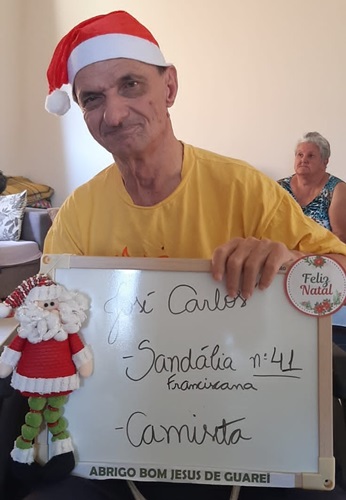 José Carlos
Feliz
Natal
-Sandália nº:41
Franciscana
-Camiseta
ABRIGO BOM JESUS DE GUAREÍ